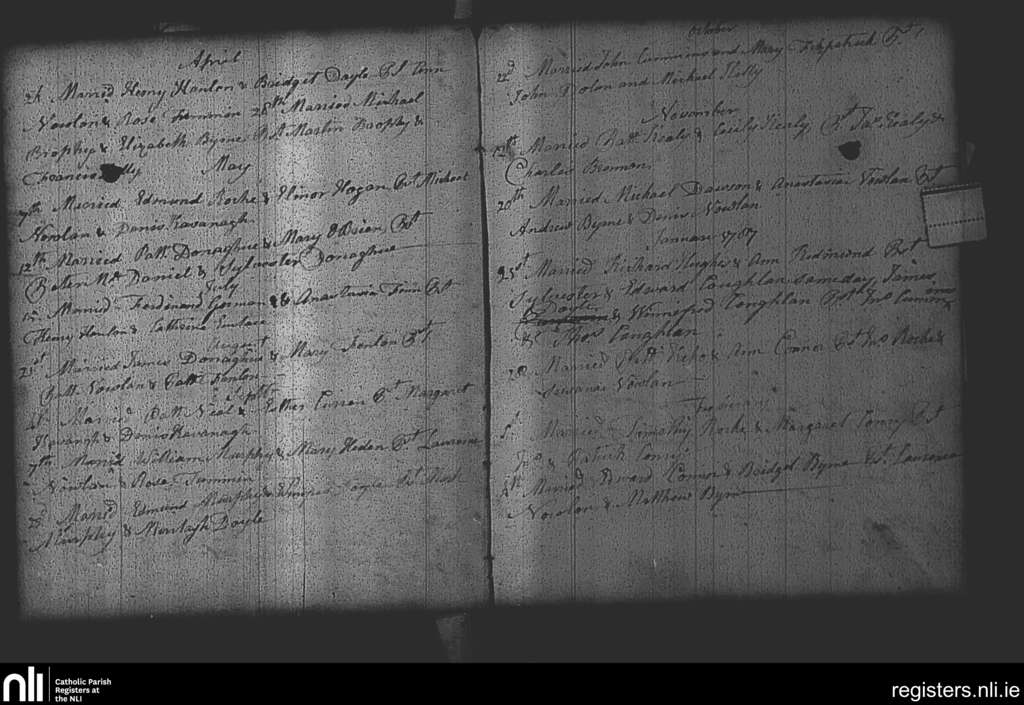 April
24 Married Henry Hanlon & Bridget Doyle Pst Ann
Nowlan & Rose Timmin 28th Married Michael
Brophy & Elizabeth Byrne Pst Martin Brophy &
Francis
May
7th Married Edmund Roche & Elinor Hogan Pst Michael
Nowlan & Denis Kavanagh
12th Married Patt Donaghue & Mary OBrien Pst
Peter Mc Daniel & Sylvester Donaghue
July
15 Married Ferdinand Gorman & Anastasia Finn Pst
Henry Hanlon & Catherine Eustace
August
21st Married James Donaghue & Mary Fenlon Pst
Patt Nowlan & Patt Fenlon
Sept
Married Patt Neal & Esther Curran Pst Margaret
Kavanagh & Denis Kavanagh
7th Married William Murphy & Mary Heden Pst Laurence
Nowlan & Rose Timmin
23d Married Edmund Murphy & Doyle Pst
Murphy & Murtagh Doyle
October
22d Married John Cummins and Mary Fitzpatrick Pst
John Dolon and Michael Kelly
November
12th Married Patt Healy & Cecily Healy Pst Jas Healy &
Charles Brennan
20th Married Michael Dawson & Anastasia Nowlan Pst
Andrew Byrne & Denis Nowlan
January 1787
25st Married Richard Hughes & Ann Redmond Pst
Sylvester & Edward Coughlan same day James
Doyle & Winnefred Coughlan Pst Jno Cummins
& Thos Coughlan
28 Married Patt & Ann Connor Pst Jno Roche &
Nowlan
February
Married Timothy Roche & Margaret Conry Pst
Jno & Patrick Conry
Married Edward Connor & Bridget Byrne Pst Laurence
Nowlan & Matthew Byrne
nli
Catholic Parish
Registers at
the NLI
registers.nli.ie